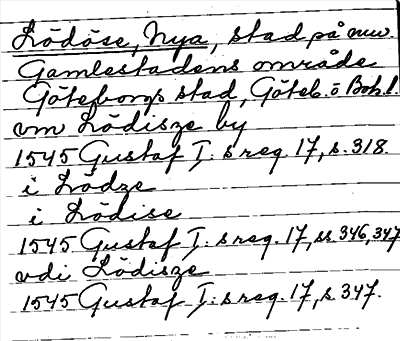 Lödöse, Nya, stad på nuv.
Gamlestadens område
Göteborgs stad, Göteb. o Boh. l.
vm Lödisze by
1545 Gustaf I:s reg. 17, s. 318.
i Lödze
i Lödise
1545 Gustaf I:s reg. 17, ss. 346, 347
vdi Lödisze
1545 Gustaf I:s reg. 17, s. 347.